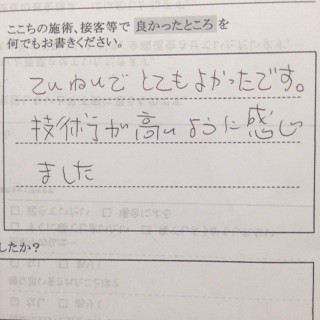 ここちの施術、接客等で 良かったところ を
何でもお書きください。
ていねいで とてもよかったです。
技術が高いように感じ
ました
したか?